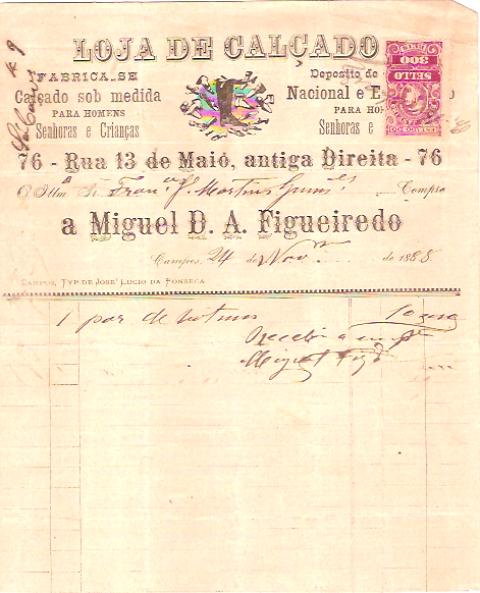 LOJA DE CALÇADO
FABRICA-SE
Calçado sob medida
PARA HOMENS
Senhoras e Crianças
Deposito de
Nacional e E
PARA HO
Senhoras e
SELLO
300
REIS
Nº 9
76 - Rua 13 de Maio, antiga Direita - 76
O Illmº Sr. Franco J. Martins Guimes Compra
a Miguel D. A. Figueiredo
Campos, 24 de Novº de 1888.
CAMPOS, TYP DE JOSÉ LUCIO DA FONSECA
1 par de botinas
Recebi
Miguel Figdº